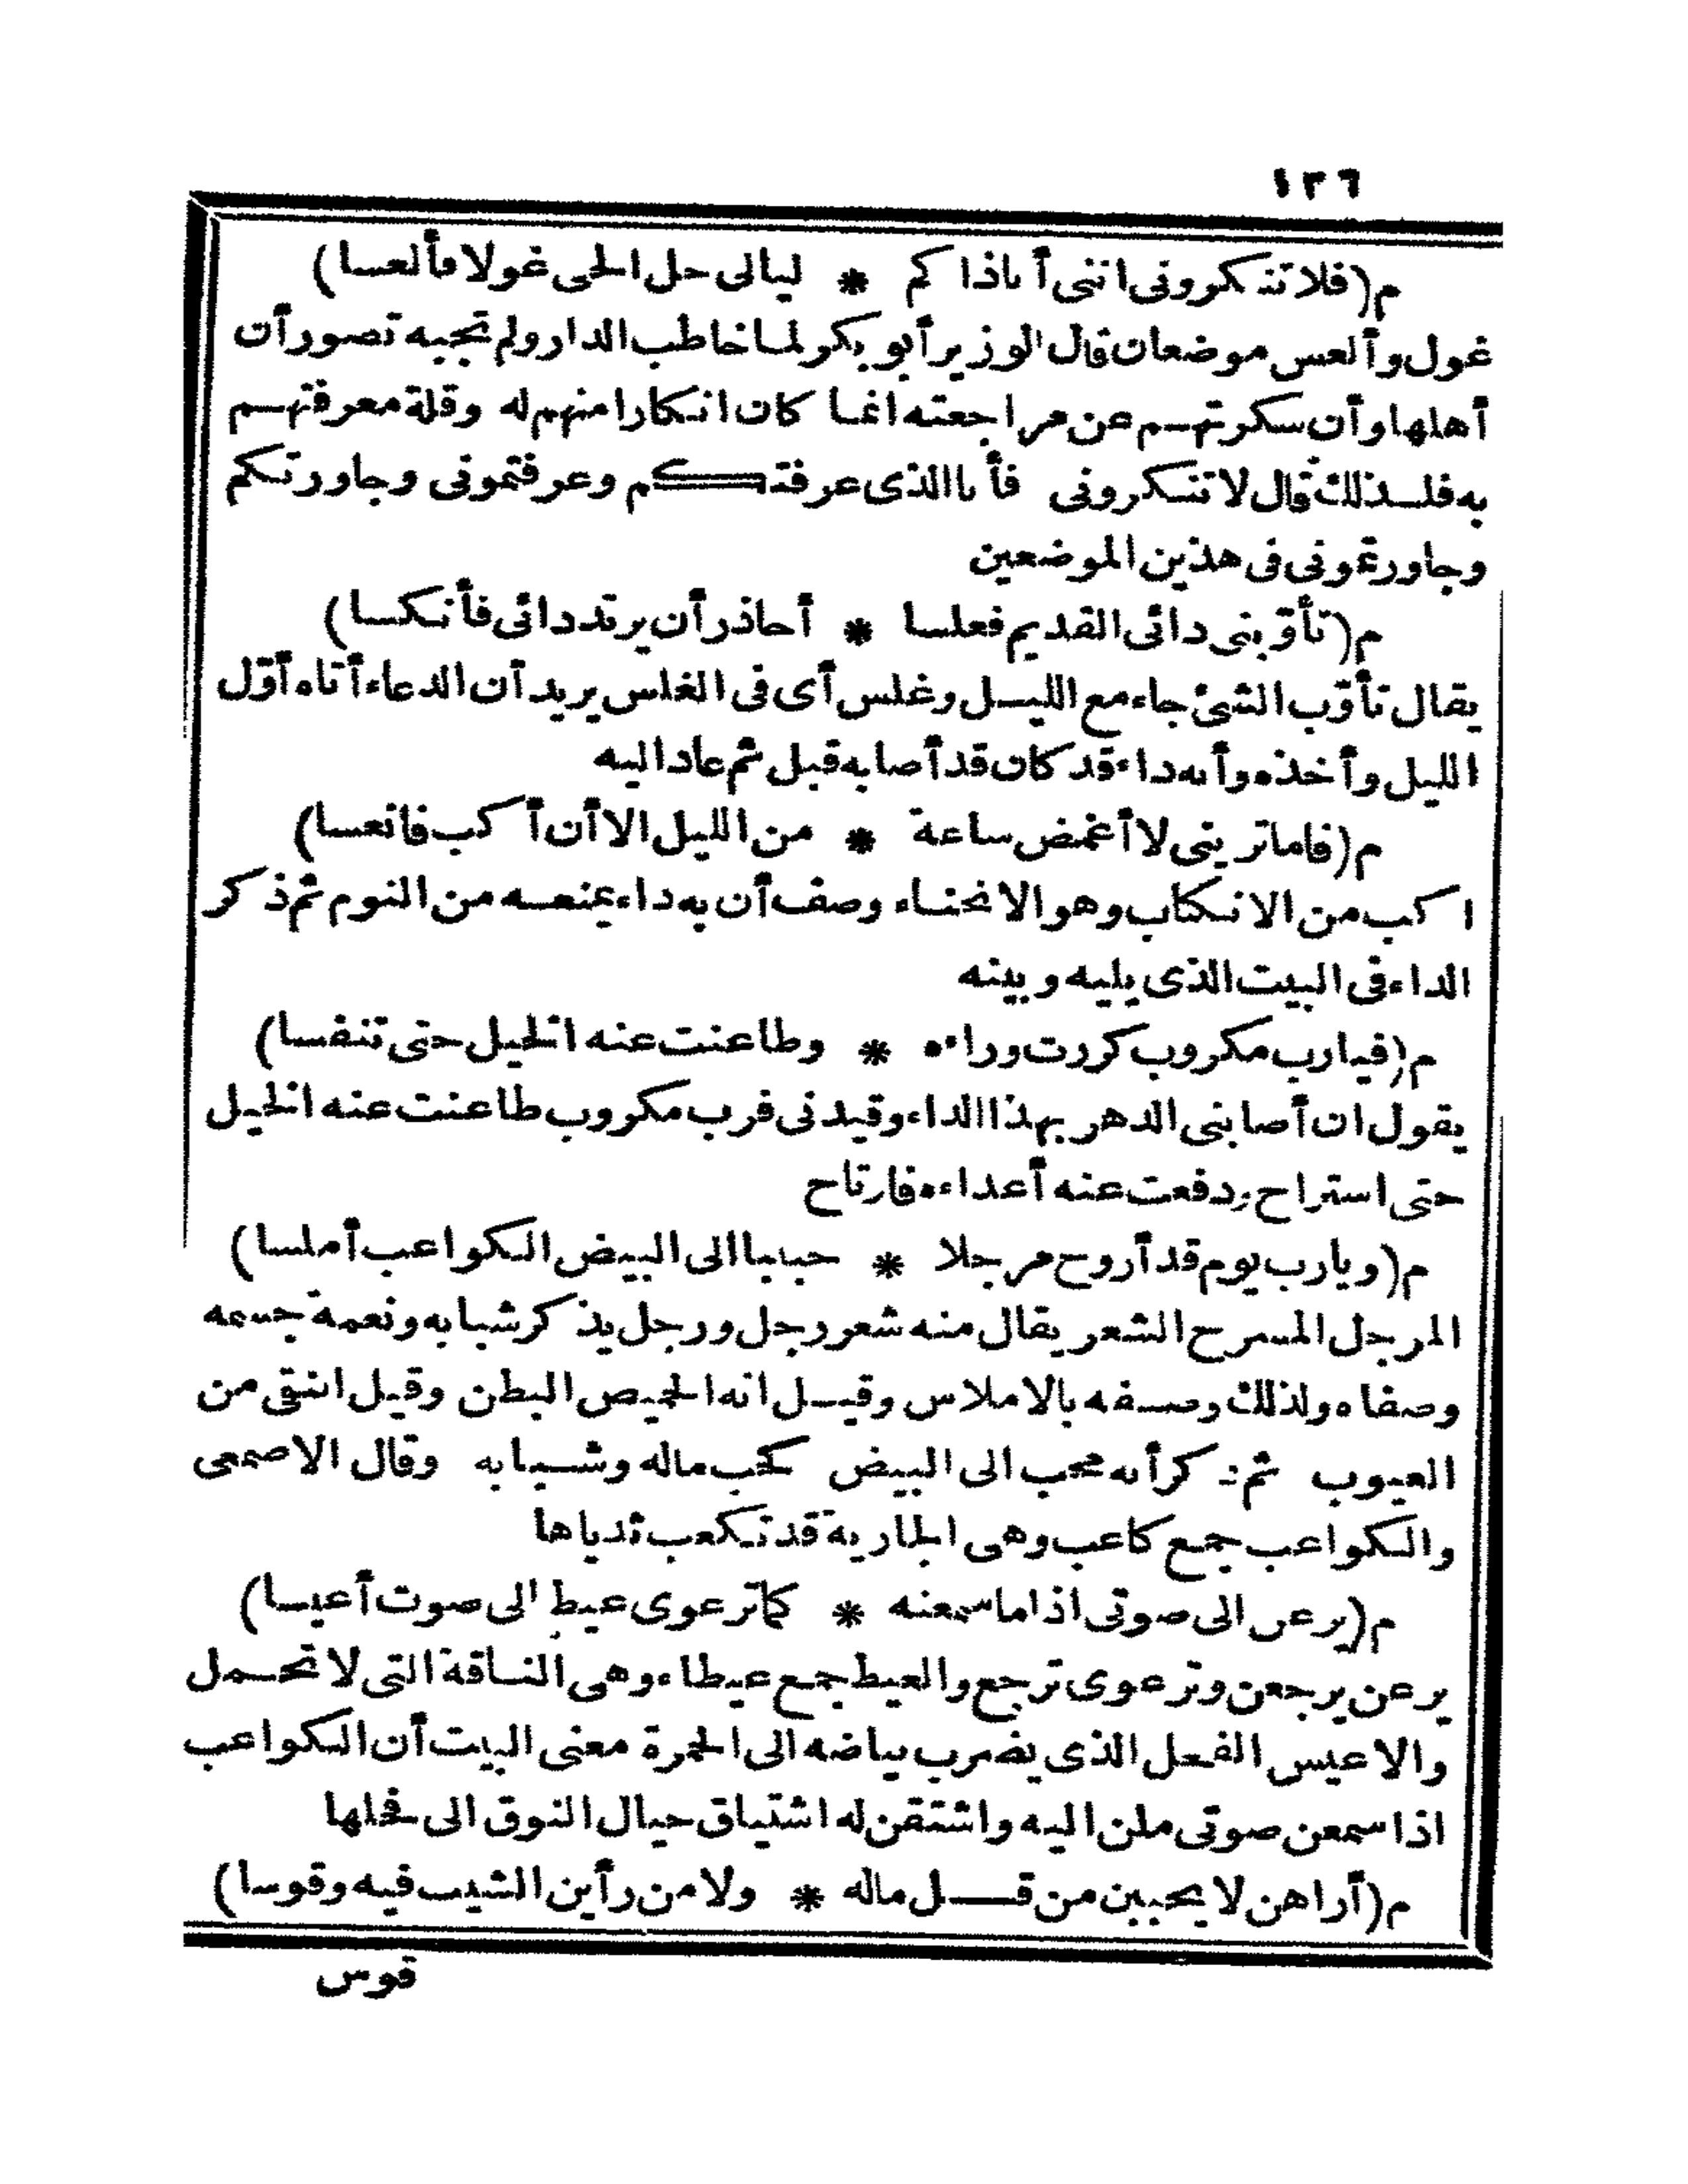 ١٣٦
م (فلا تنكرونى اننى أنا ذاكم * ليالى حل الحى غولا فألعسا)
غول وألعس موضعان قال الوزير أبو بكر لما خاطب الدار ولم تجبه تصور أن
أهلها وأن سكرتهم عن مراجعته انما كان انكارا منهم له وقلة معرفتهم
به فلذلك قال لا تنكرونى فأنا الذى عرفتكم وعرفتمونى وجاورتكم
وجاورتمونى فى هذين الموضعين
م (تأوّبنى دائى القديم فعلسا * أحاذر أن يرتد دائى فأنكسا)
يقال تأوّب الشئ جاء مع الليل وغلس أى فى الغلس يريد أن الدعاء أتاه أوّل
الليل وأخذه وأنه داء قد كان قد أصابه قبل ثم عاد اليه
م (فاما ترينى لا أغمض ساعة * من الليل الا أن أكب فانعسا)
اكب من الانكباب وهو الانحناء وصف أن به داء يمنعه من النوم ثم ذكر
الداء فى البيت الذى يليه وبينه
م (فيارب مكروب كررت وراءه * وطاعنت عنه الخيل حتى تنفسا)
يقول ان أصابنى الدهر بهذا الداء وقيدنى فرب مكروب طاعنت عنه الخيل
حتى استراح ودفعت عنه أعداءه فارتاح
م (ويارب يوم قد أروح مرجلا * حبيبا الى البيض الكواعب أملسا)
المرجل المسرح الشعر يقال منه شعر رجل ورجل يذكر شبابه ونعمة جسمه
وصفاه ولذلك وصفه بالاملاس وقيل انه الخميص البطن وقيل النقى من
العيوب ثم ذكر أنه محب الى البيض كحب ماله وشبابه وقال الاصمعى
والكواعب جمع كاعب وهى الجارية قد تكعب ثدياها
م (يرعن الى صوتى اذا ما سمعنه * كما ترعوى عيط الى صوت أعيسا)
يرعن يرجعن وترعوى ترجع والعيط جمع عيطاء وهى الناقة التى لا تحمل
والاعيس الفحل الذى يضرب بياضه الى الحمرة معنى البيت أن الكواعب
اذا سمعن صوتى ملن اليه واشتقن له اشتياق حيال النوق الى فحلها
م (أراهن لا يحببن من قل ماله * ولا من رأين الشيب فيه وقوسا)
قوس